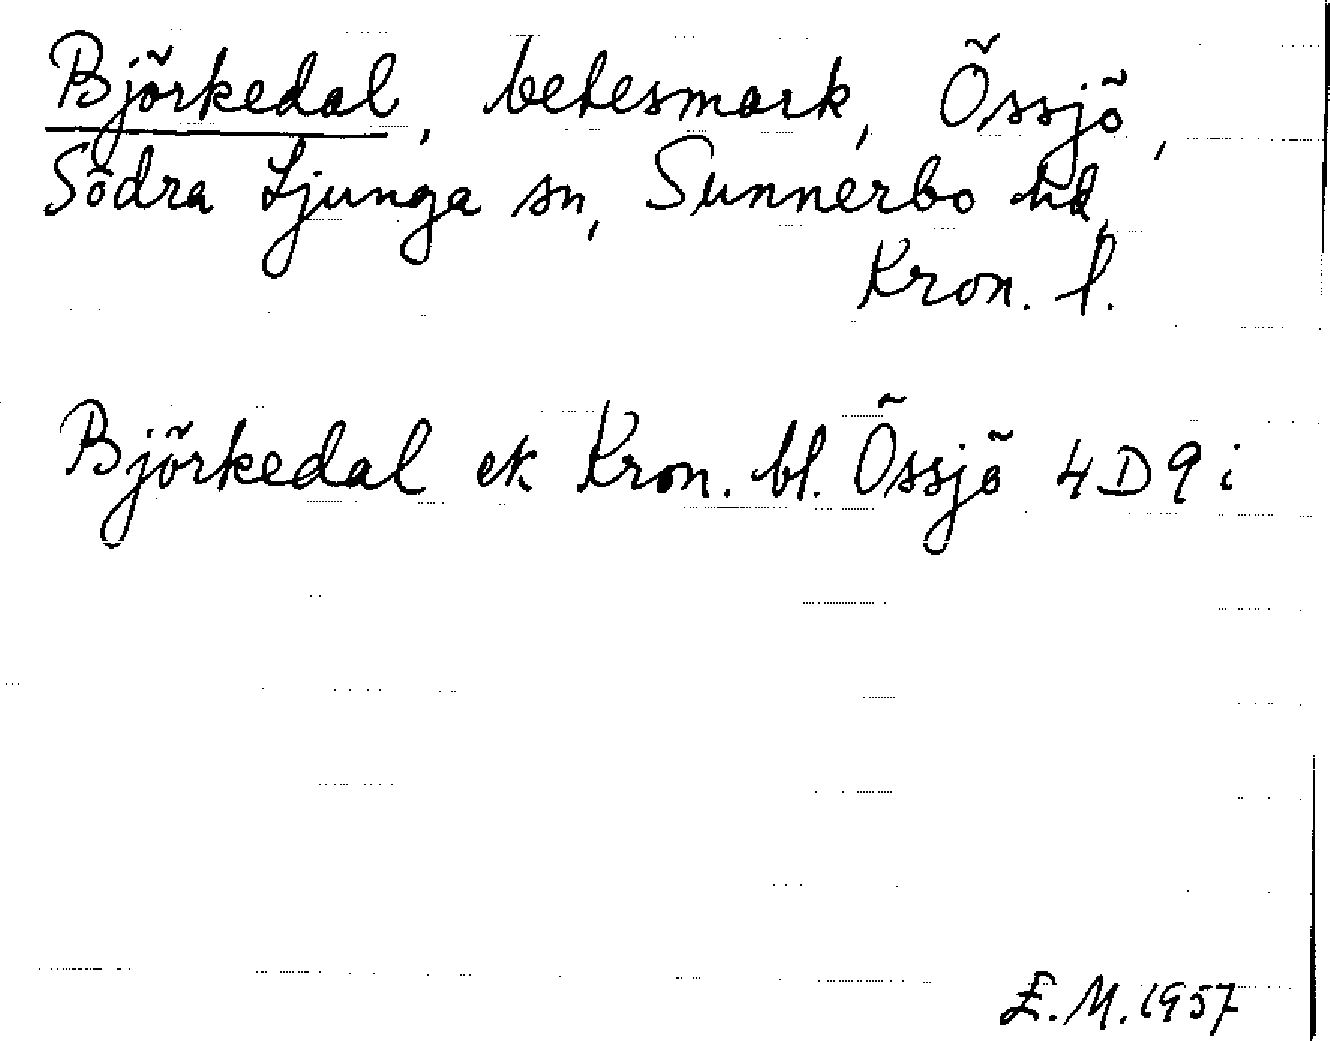 Björkedal, betesmark, Össjö,
Södra Ljunga sn, Sunnerbo hd,
Kron. l.
Björkedal ek Kron. bl. Össjö 4D9i
E.M. 1957